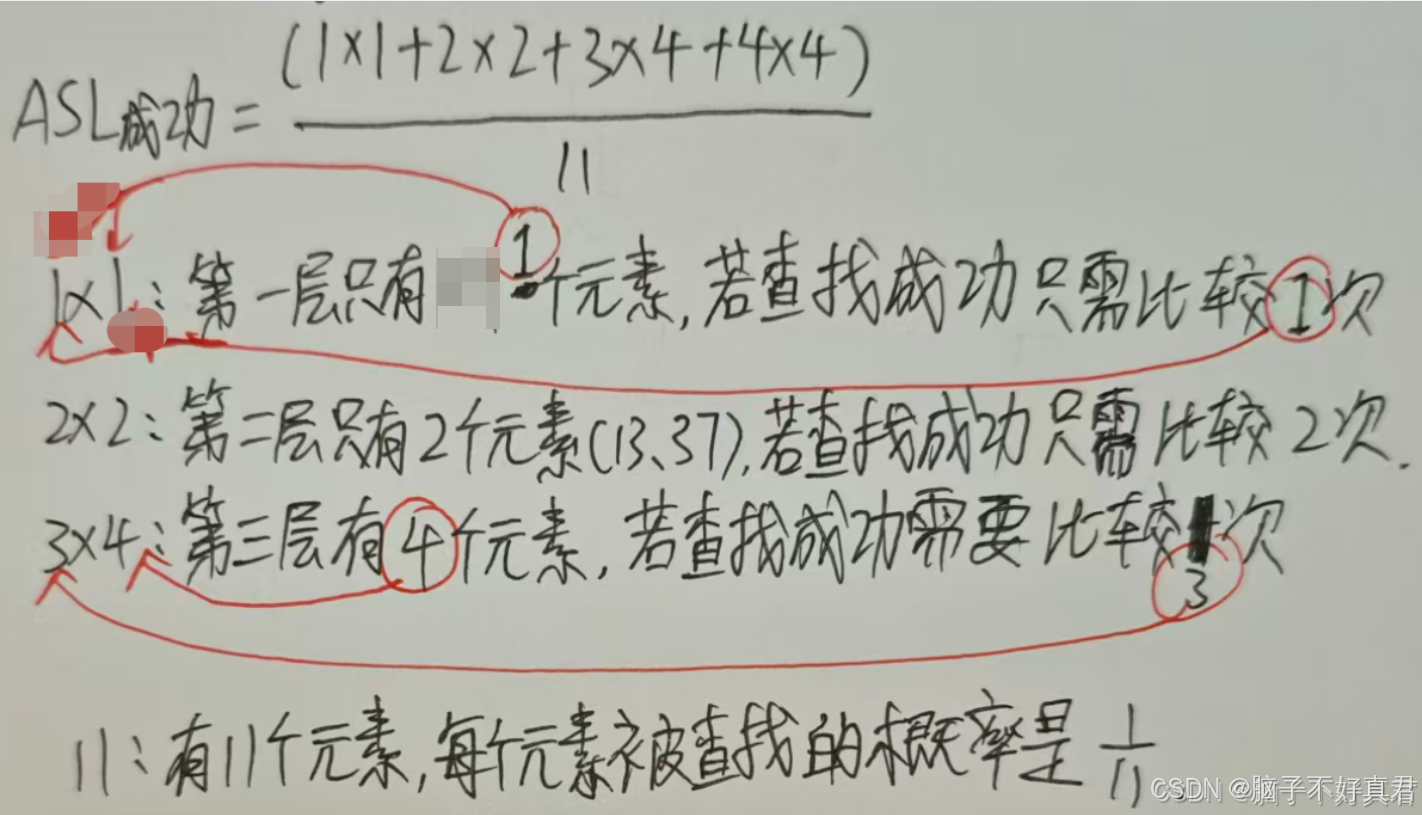 (1×1+2×2+3×4+4×4)
ASL成功=
11
1×1:第一层只有1个元素,若查找成功只需比较1次
2×2:第二层只有2个元素(13、37),若查找成功只需比较2次.
3×4:第三层有4个元素,若查找成功需要比较3次
11:有11个元素,每个元素被查找的概率是1/11
CSDN @脑子不好真君